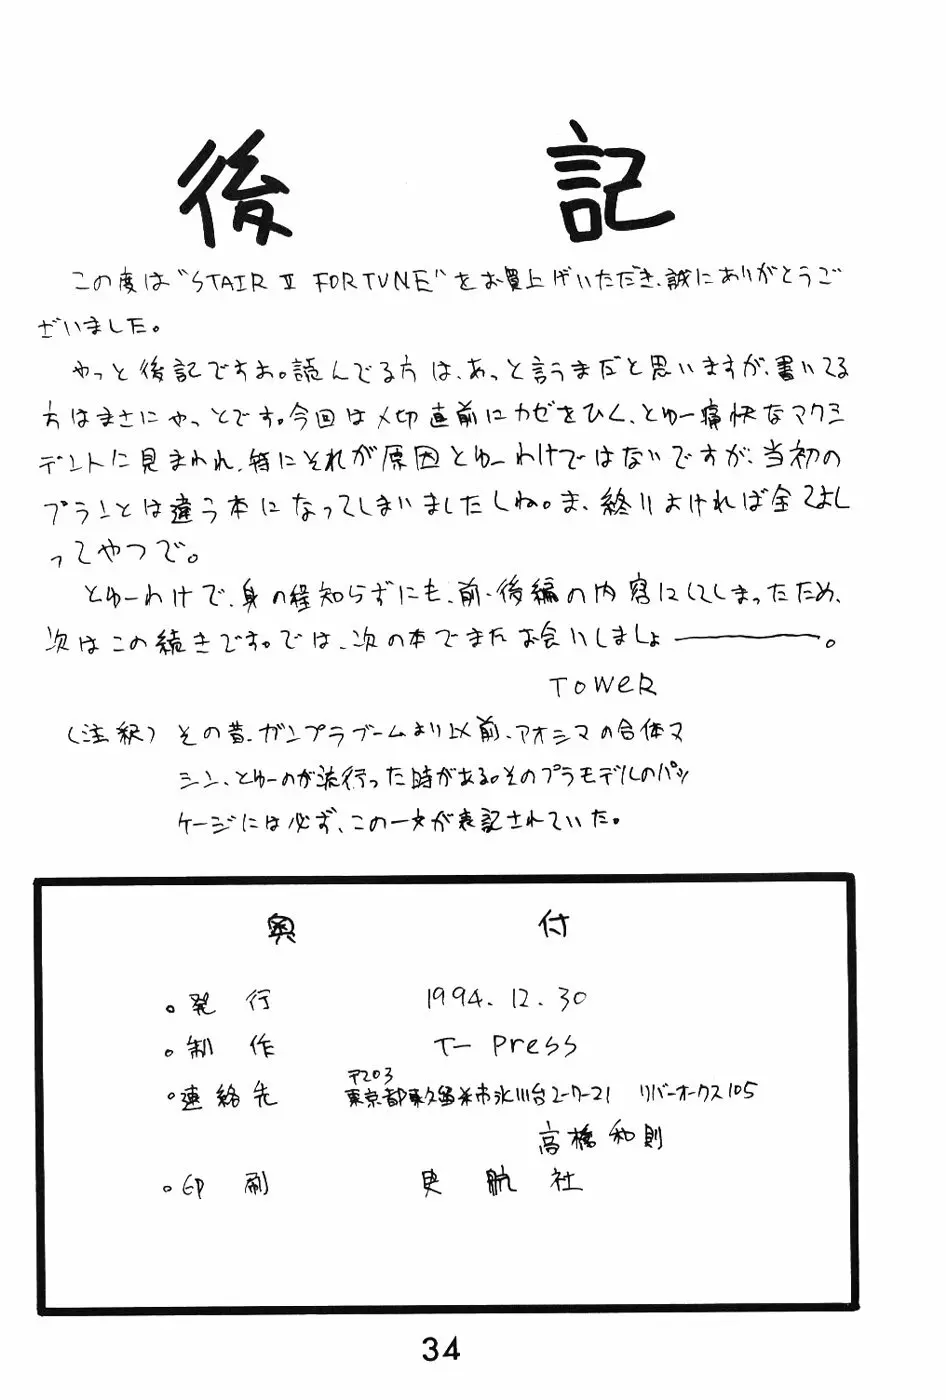 後記
この度は"STAIR Ⅱ FORTUNE"をお買上げいただき、誠にありがとうご
ざいました。
やっと後記ですお。読んでる方は、あっと言うまだと思いますが、書いてる
方はまさにやっとです。今回は〆切直前にカゼをひく、とゆー痛快なアクシ
デントに見まわれ、特にそれが原因とゆーわけではないですが、当初の
プランとは違う本になってしまいましたしね。ま、終りよければ全てよし
ってやつで。
とゆーわけで、身の程知らずにも、前・後編の内容にしてしまったため、
次はこの続きです。では、次の本でまたお会いしましょ――――。
TOWER
(注釈) その昔、ガンプラブームより以前、アオシマの合体マ
シン、とゆーのが流行った時がある。そのプラモデルのパッ
ケージには必ず、この一文が表記されていた。
奥付
・発行 1994.12.30
・制作 T-Press
・連絡先 〒203
東京都東久留米市氷川台2-7-21 リバーオークス105
高橋和則
・印刷 航社
34